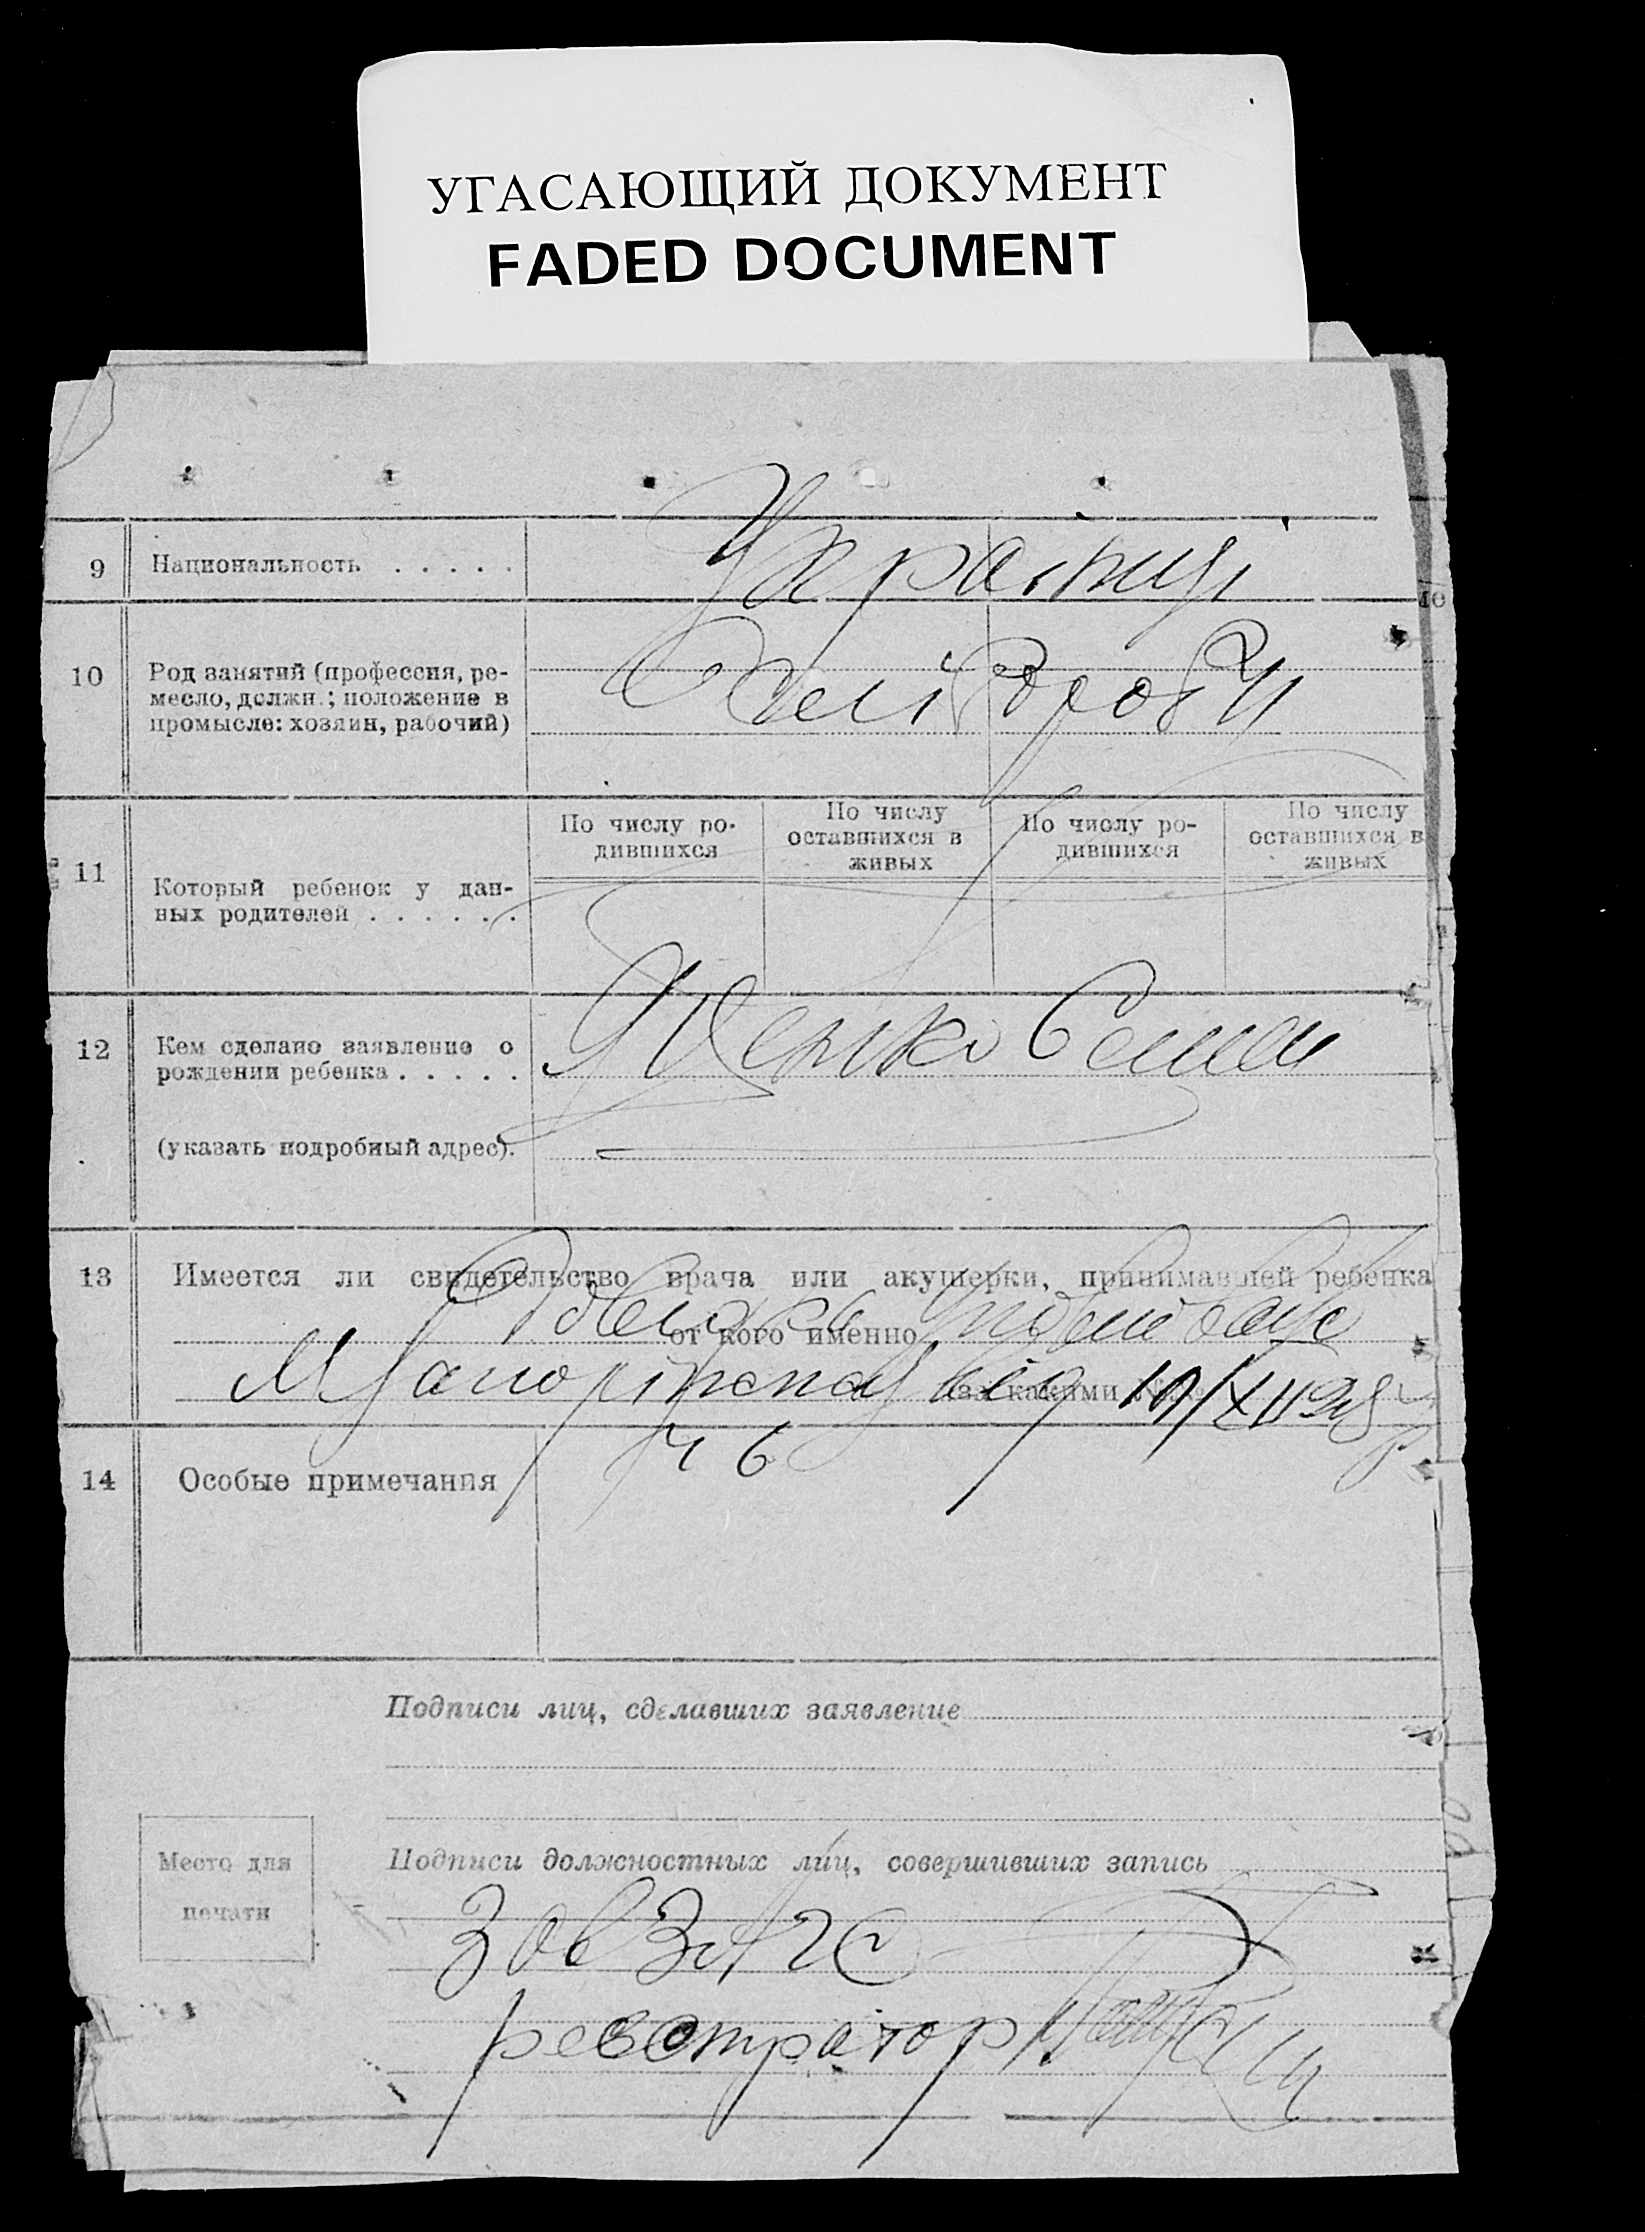 УГАСАЮЩИЙ ДОКУМЕНТ
FADED DOCUMENT
9 Национальность . . . . .
Українці
10 Род занятий (профессия, ре-
месло, должн.; положение в
промысле: хозяин, рабочий)
Хлібороби
11 Который ребенок у дан-
ных родителей . . . . . .
По числу ро-
дившихся
По числу
оставшихся в
живых
По числу ро-
дившихся
По числу
оставшихся в
живых
12 Кем сделано заявление о
рождении ребенка . . . . .
Семен
(указать подробный адрес).
13 Имеется ли свидетельство врача или акушерки, принимавшей ребенка
от кого именно
за какими
10/XII 28 р
46
14 Особые примечания
Подписи лиц, сделавших заявление
Место для
печати
Подписи должностных лиц, совершивших запись
Зав ЗАГС
реєстратор